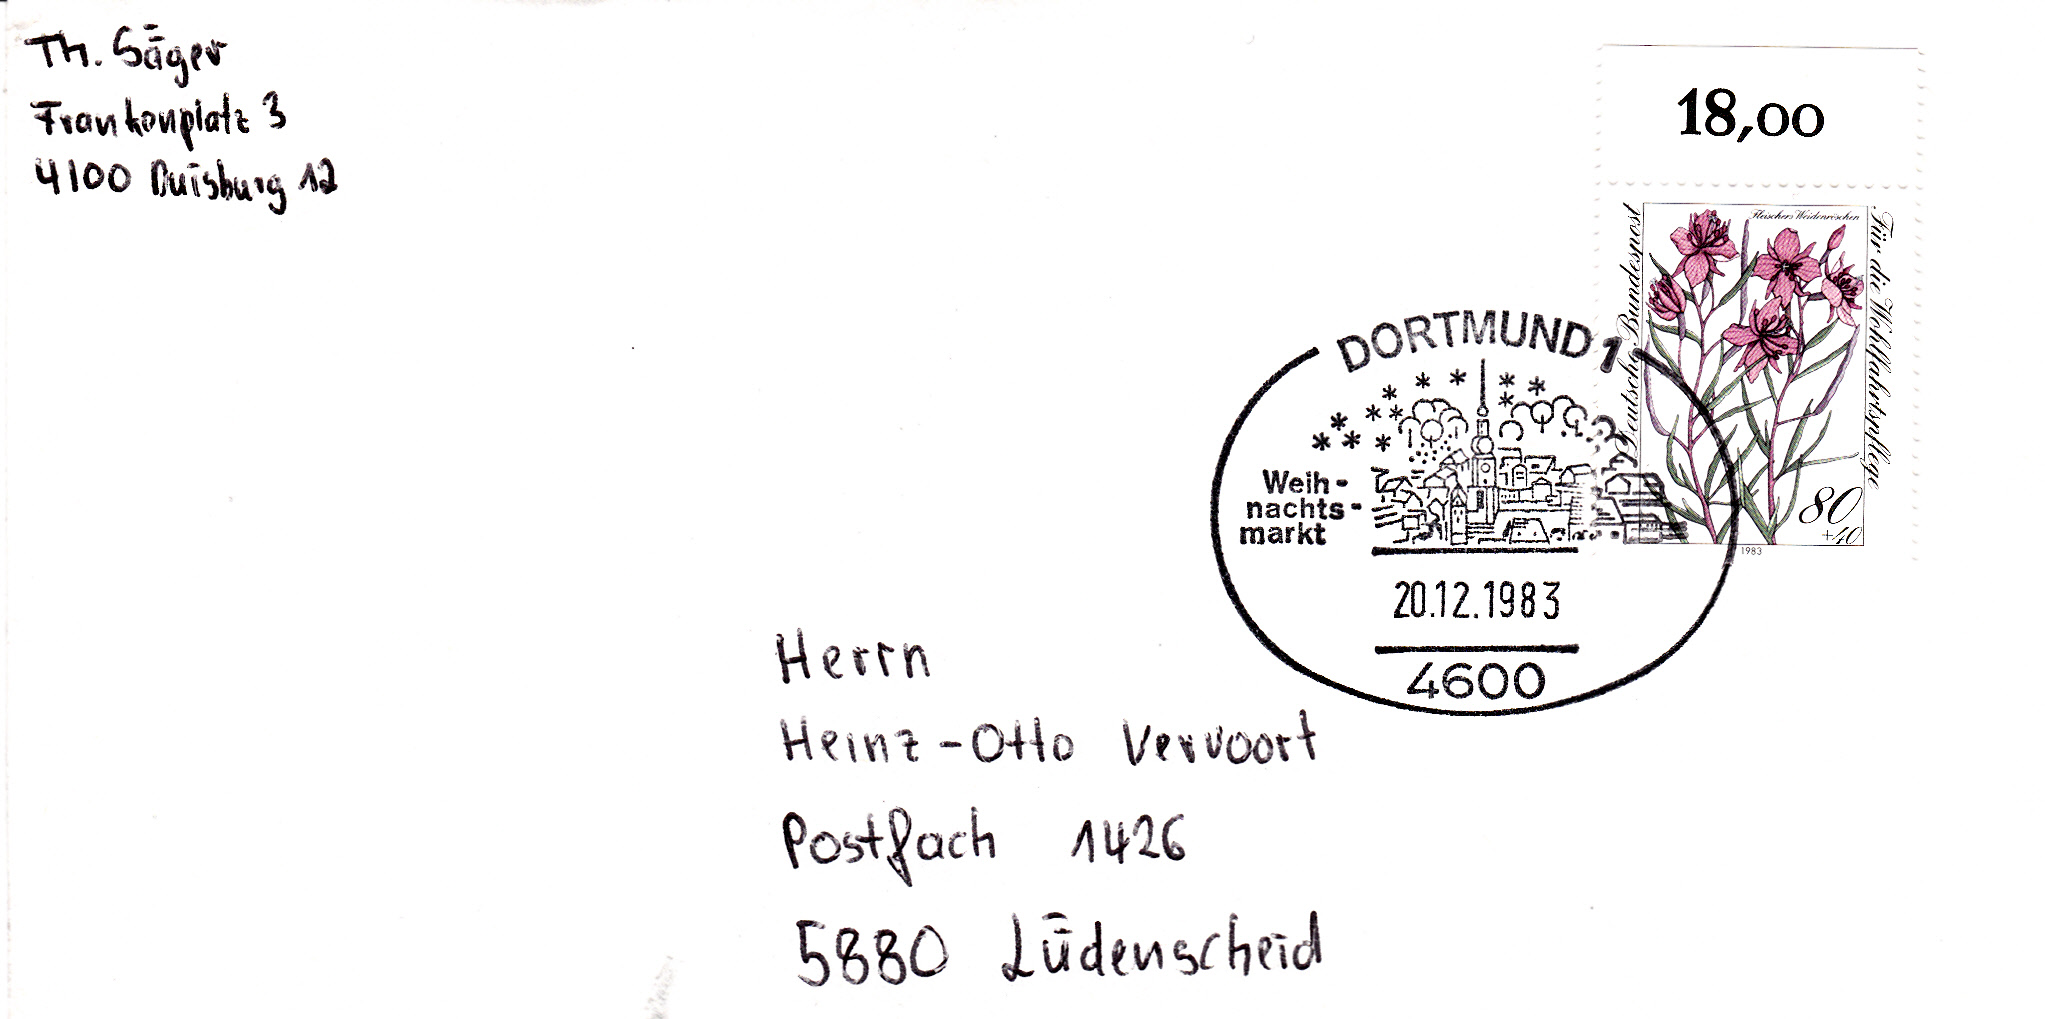 Th. Säger
Frankenplatz 3
4100 Duisburg 12
18,00
Fleischers Weidenröschen
Deutsche Bundespost
Für die Wohlfahrtspflege
80
+40
1983
DORTMUND 1
Weih-
nachts-
markt
20.12.1983
4600
Herrn
Heinz-Otto Vervoort
Postfach 1426
5880 Lüdenscheid